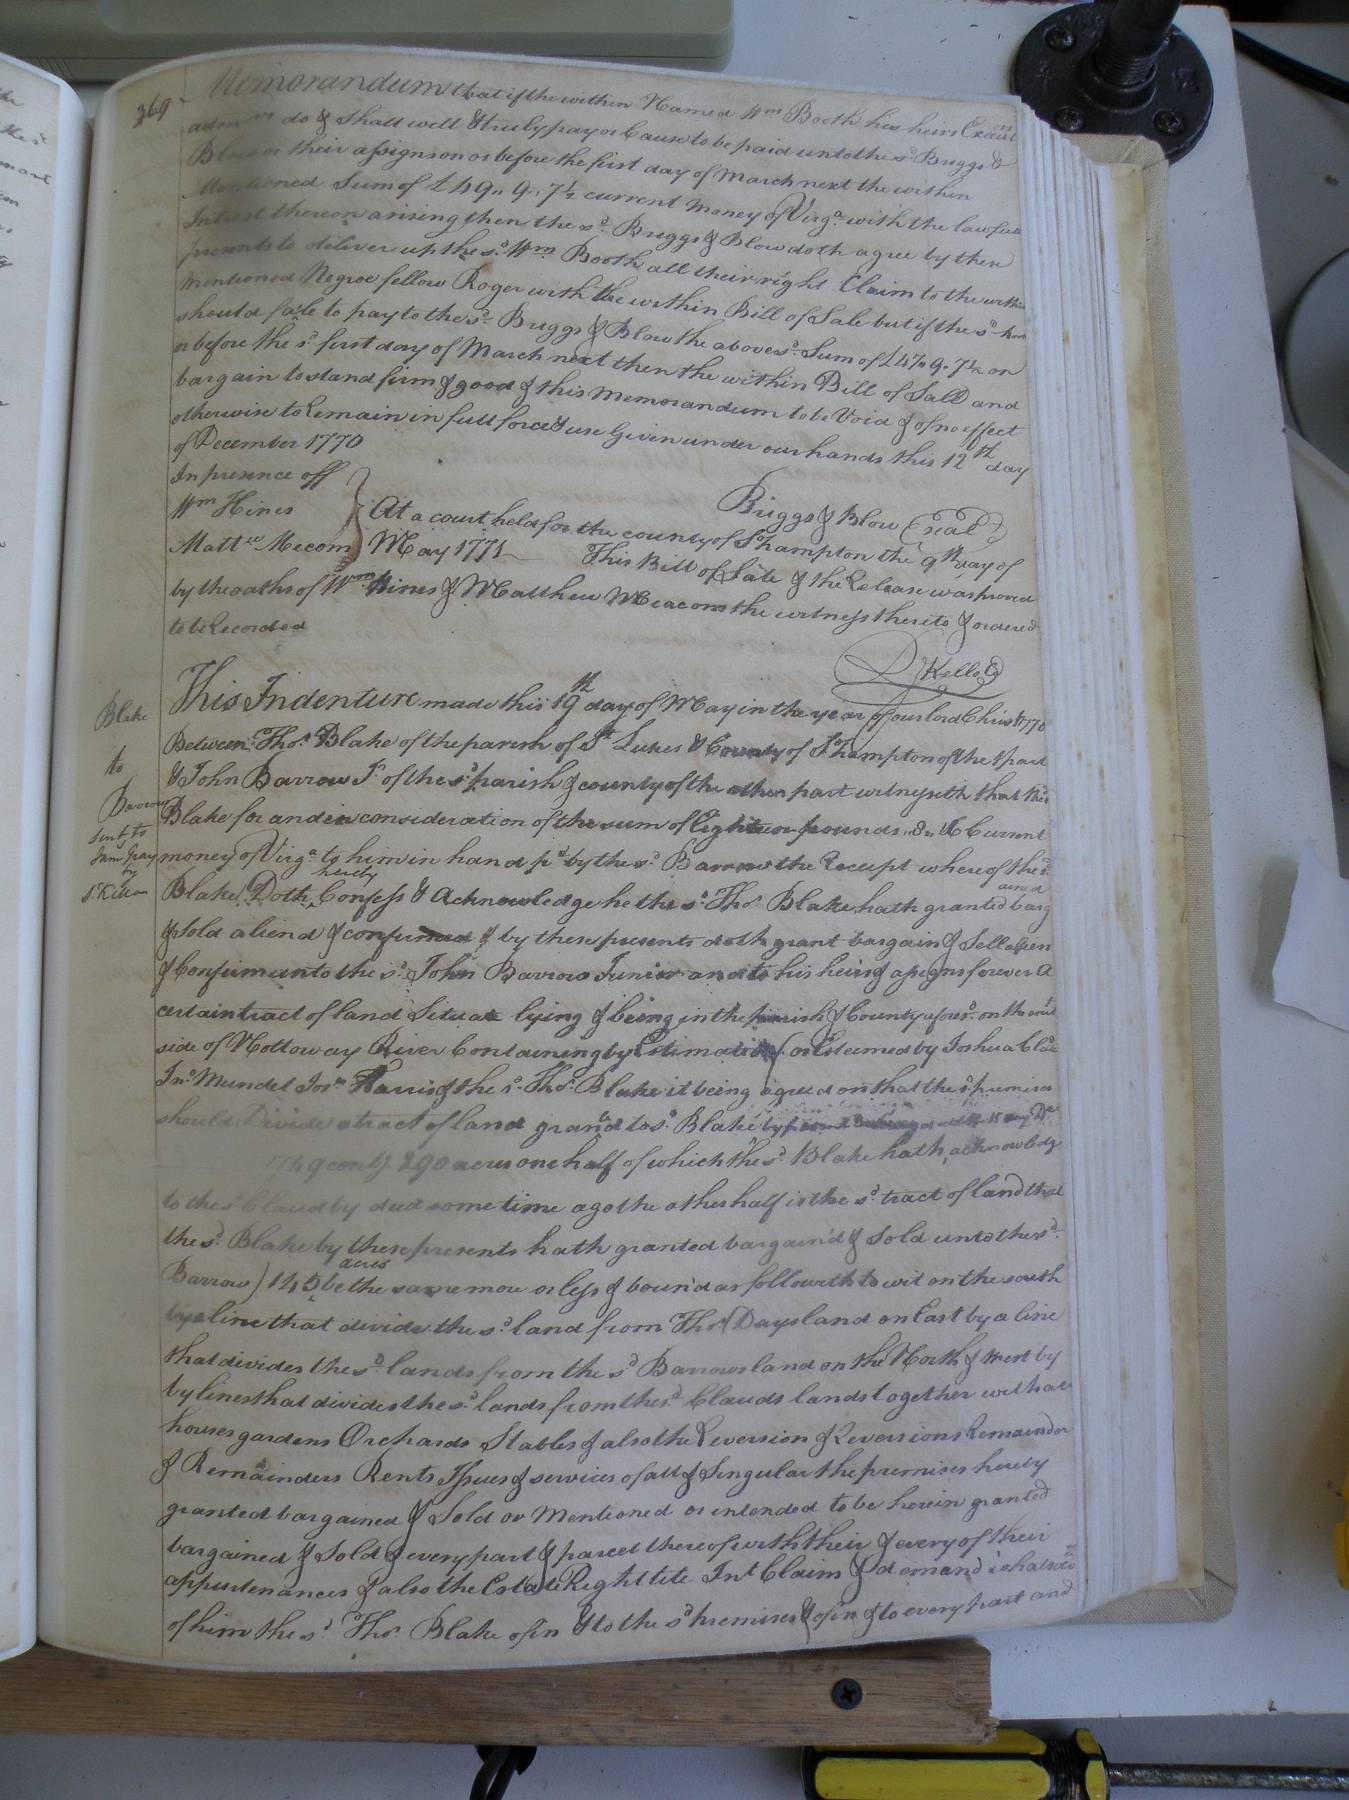 369
Memorandum that if the within Named Wm Booth his heirs Exaut
adminrs do & shall well & truly pay or Cause to be paid unto the sd Briggs &
Blow or their assigns on or before the first day of March next the within
Mentioned Sum of £49,, 9,, 7½ current money of Virga with the lawfull
Intrest thereon arising then the sd Briggs & Blow doth agree by these
presents to deliver up the sd Wm Booth all their right Claim to the within
mentioned Negroe fellow Roger with the within Bill of Sale but if the sd
should faile to pay to the sd Briggs & Blow the above sd Sum of £49,, 9,, 7½ on
or before the sd first day of March next then the within Bill of Sale and
bargain to stand firm & good & this Memorandum to be Void & of no effect
otherwise to Remain in full force & use Given under our hands this 12th day
of December 1770
In presence off
Wm Hines
Mattw Mecom
Briggs & Blow (Seal)
At a court held for the county of Shampton the 9th day of
May 1771 This Bill of Sale & the Release was proved
by the oaths of Wm Hines & Matthew Meacom the witness thereto & ordered
to be Recorded
Kello
Blake
to
Barrow
sent to
Jam Gray
by
This Indenture made this 19th day of May in the year of our lord Christ 1770
Between Thos Blake of the parish of St Lukes & County of Shampton of the 1 part
& John Barrow Jr of the sd parish & county of the other part witnesseth that the
Blake for and in consideration of the sum of Eighteen pounds Current
money of Virga to him in hand pd by the sd Barrow the Receipt whereof the sd
Blake Doth hereby Confess & Acknowledge he the sd Thos Blake hath granted bargained
& sold aliend & confirmed & by these presents doth grant bargain & Sell alien
& Confirm unto the sd John Barrow Junior and to his heirs & assigns forever A
certain tract of land Situate lying & being in the parish & County afores on the south
side of Nottoway River Containing by Estimation (or Esteemed by Joshua Claud
Jno Mundel Harris & the sd Thos Blake it being agreed on that the sd premises
should Divide a tract of land granted to sd Blake by
1749 contg 290 acres one half of which the sd Blake hath acknowledg
to the sd Claud by deed some time ago the other half is the sd tract of land that
the sd Blake by these presents hath granted bargain'd & Sold unto the sd
Barrow) 145 acres be the same more or less & bound as followeth to wit on the south
by a line that divides the sd land from Thos Days land on East by a line
that divides the sd lands from the sd Barrows land on the North & west by
by lines that divides the sd lands from the sd Clauds lands together with all
houses gardens Orchards Stables & also the Reversion & Reversions Remainder
& Remainders Rents Issues & services of all & Singular the premises hereby
granted bargained & Sold or Mentioned or intended to be herein granted
bargained & Sold & every part & parcel thereof with their & every of their
appurtenances & also the Estate Right title Int Claim & demand whatsoever
of him the sd Thos Blake of in & to the sd premises & of in & to every part and